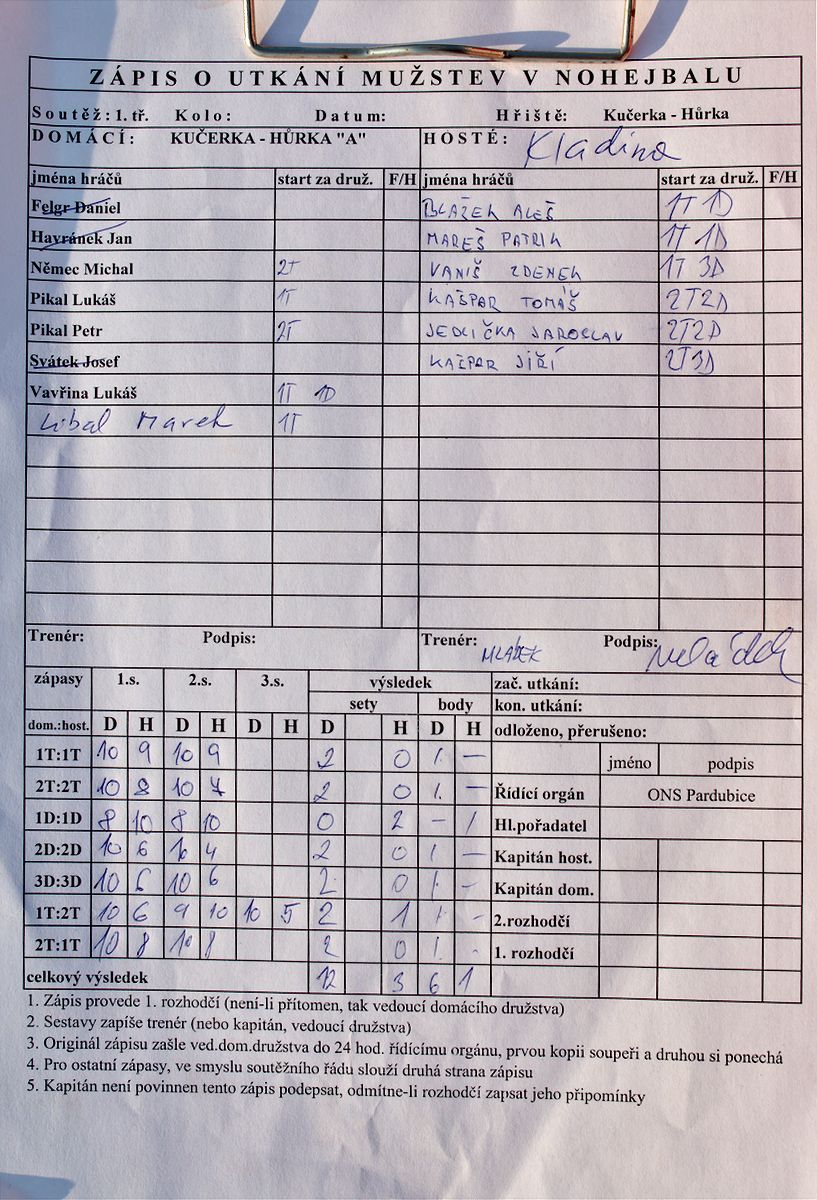 ZÁPIS O UTKÁNÍ MUŽSTEV V NOHEJBALU
Soutěž: 1. tř. Kolo: Datum: Hřiště: Kučerka - Hůrka
DOMÁCÍ: KUČERKA - HŮRKA "A" HOSTÉ: Kladina
jména hráčů start za druž. F/H jména hráčů start za druž. F/H
Felgr Daniel BLAŽEK ALEŠ 1T 1D
Havránek Jan MAREŠ PATRIK 1T 1D
Němec Michal 2T VANIŠ ZDENEK 1T 3D
Pikal Lukáš 1T KAŠPAR TOMÁŠ 2T2D
Pikal Petr 2T JEDLIČKA JAROSLAV 2T2D
Svátek Josef KAŠPAR JIŘÍ 2T3D
Vavřina Lukáš 1T 1D
Libal Marek 1T
Trenér: Podpis: Trenér: MLÁDEK Podpis: Mládek
zápasy 1.s. 2.s. 3.s. výsledek zač. utkání:
sety body kon. utkání:
dom.:host. D H D H D H D H D H odloženo, přerušeno:
1T:1T 10 9 10 9 2 0 1. — jméno podpis
2T:2T 10 8 10 7 2 0 1. — Řídící orgán ONS Pardubice
1D:1D 8 10 8 10 0 2 – 1 Hl.pořadatel
2D:2D 10 6 10 4 2 0 1 — Kapitán host.
3D:3D 10 6 10 6 2 0 1 - Kapitán dom.
1T:2T 10 6 9 10 10 5 2 1 1 - 2.rozhodčí
2T:1T 10 8 10 8 2 0 1. - 1. rozhodčí
celkový výsledek 12 3 6 1
1. Zápis provede 1. rozhodčí (není-li přítomen, tak vedoucí domácího družstva)
2. Sestavy zapíše trenér (nebo kapitán, vedoucí družstva)
3. Originál zápisu zašle ved.dom.družstva do 24 hod. řídícímu orgánu, prvou kopii soupeři a druhou si ponechá
4. Pro ostatní zápasy, ve smyslu soutěžního řádu slouží druhá strana zápisu
5. Kapitán není povinnen tento zápis podepsat, odmítne-li rozhodčí zapsat jeho připomínky